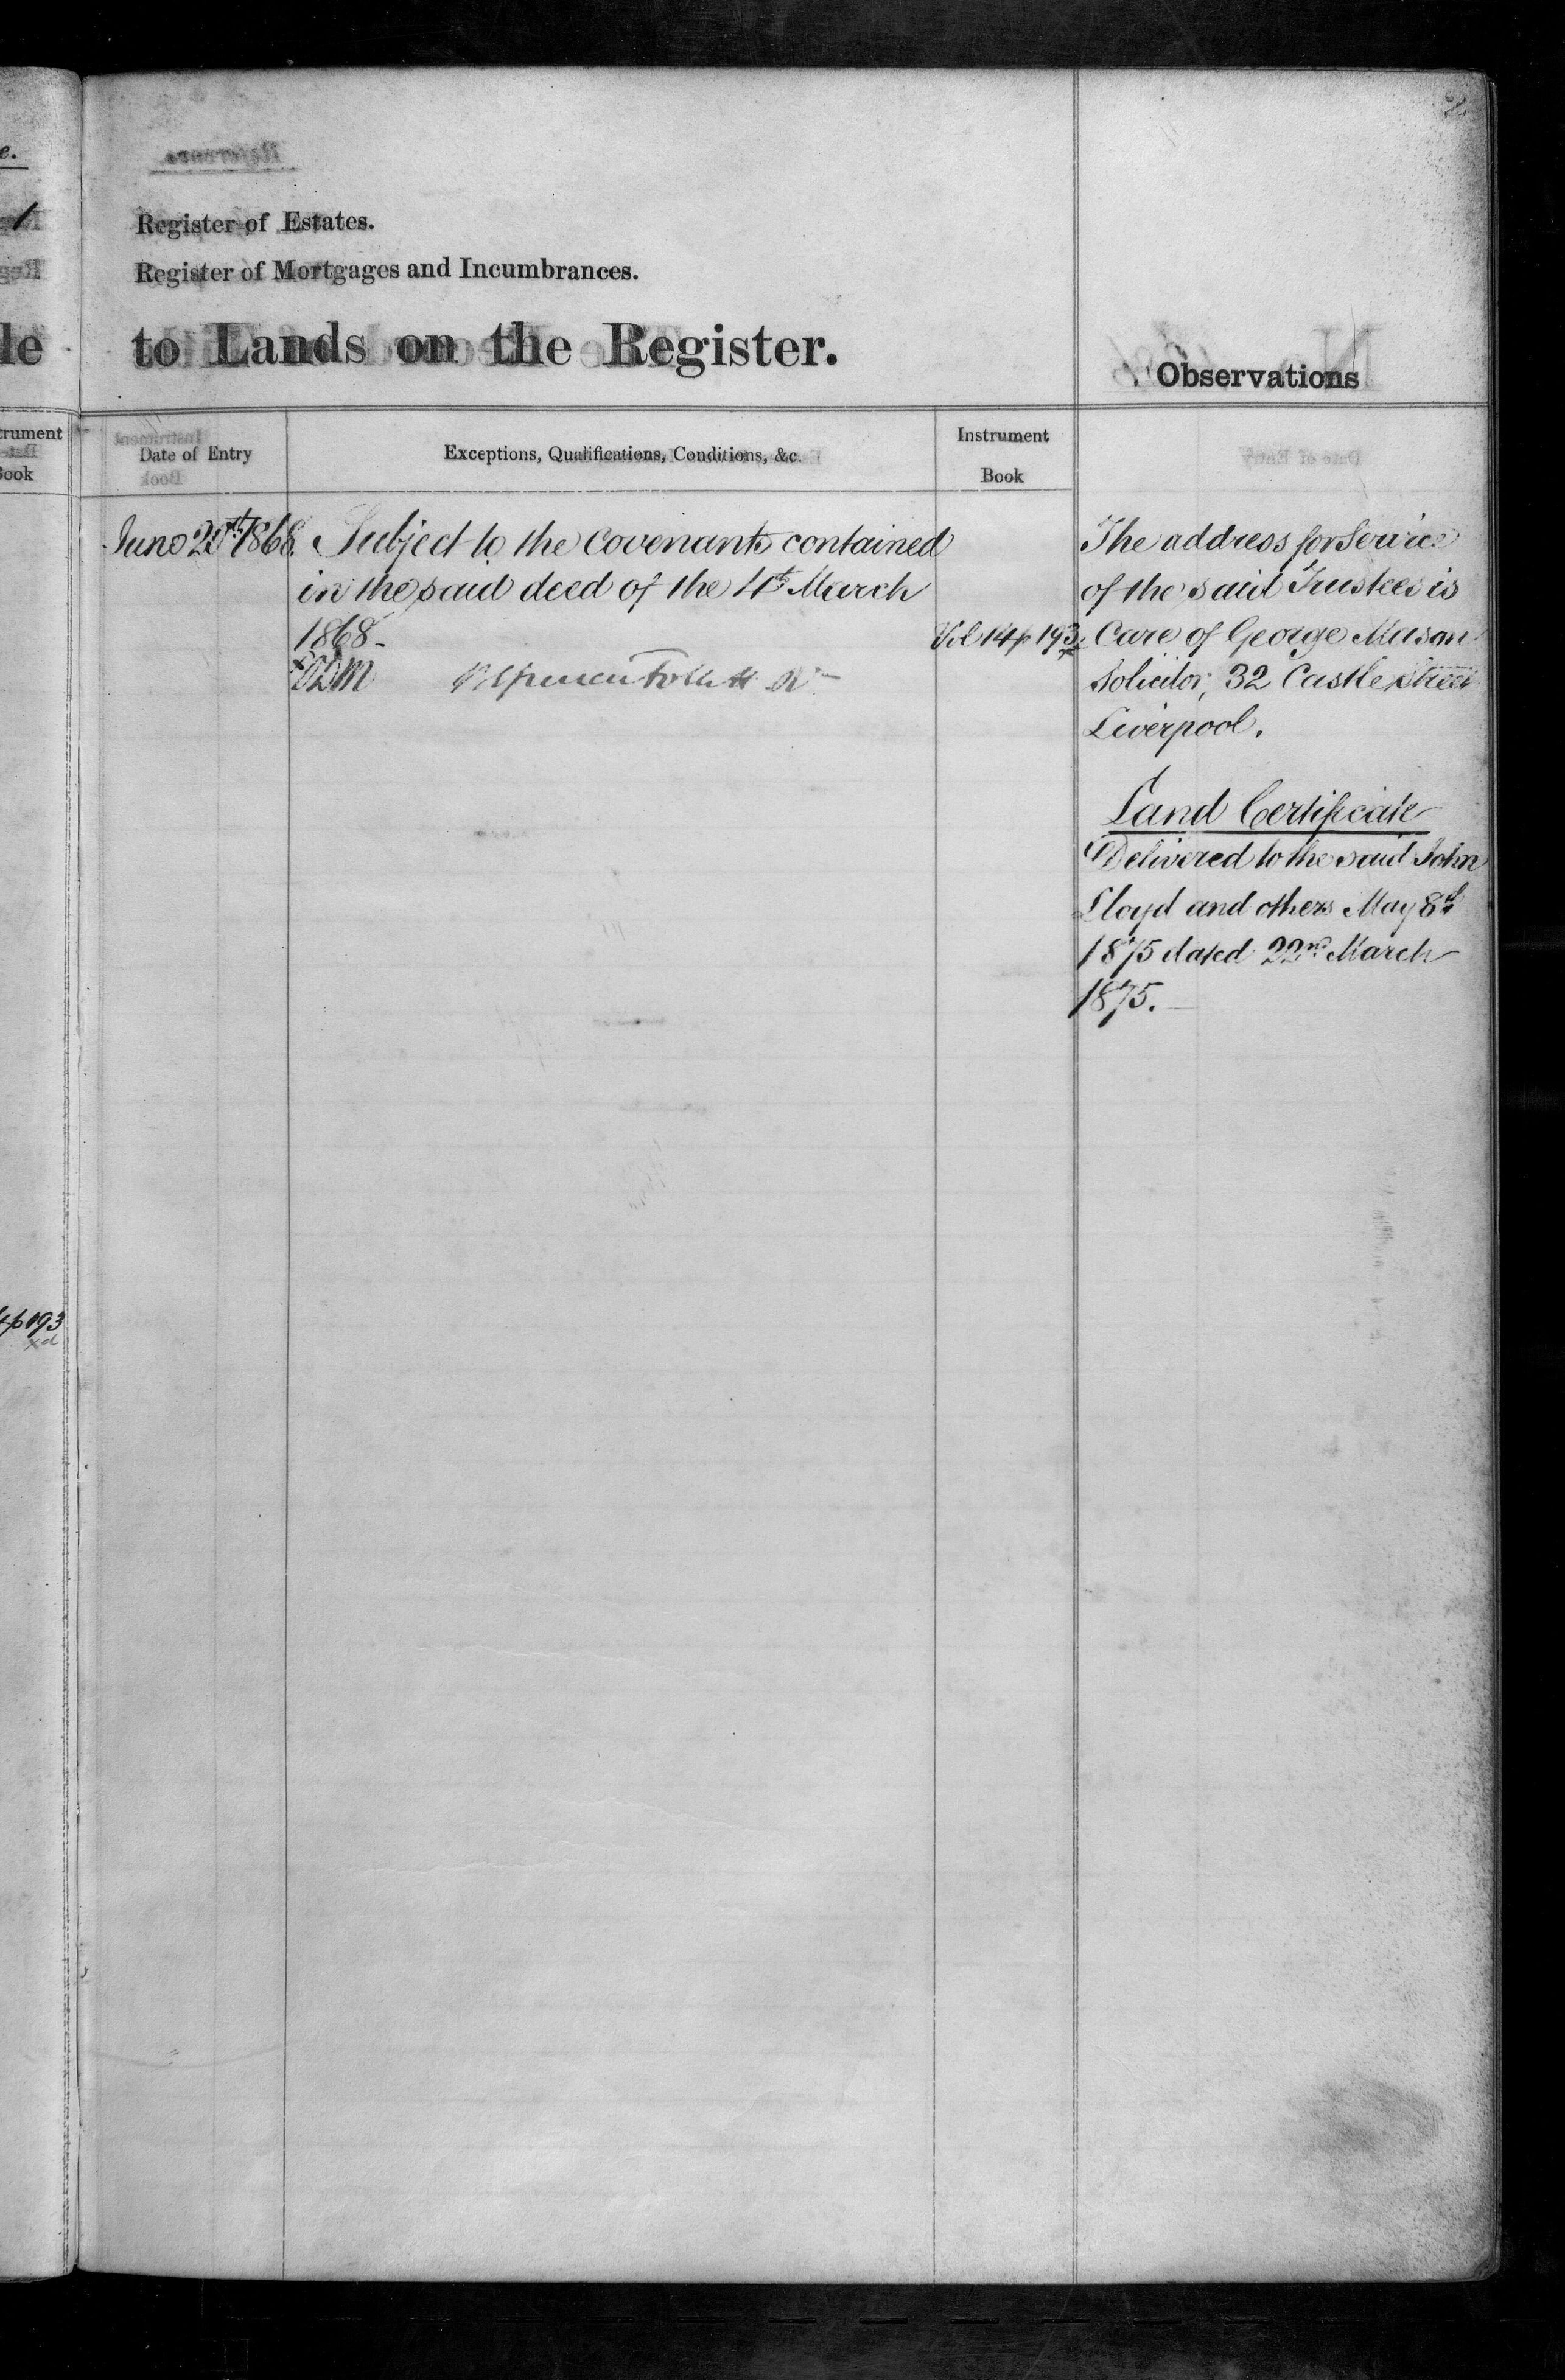 Register of Estates.
Register of Mortgages and Incumbrances.
le to Lands on the Register.
Observations
trument
Book
Date of Entry
Exceptions, Qualifications, Conditions, &c.
Instrument
Book
June 1868. Subject to the Covenants contained
in the said deed of the 4th March
1868 -
Vol 14 p 193
p 193
xd
The address for Service
of the said Trustees is
Care of George Mason
Solicitor, 32 Castle Street
Liverpool.
Land Certificate
Delivered to the said John
Lloyd and others May 8th
1875 dated 22nd March
1875.